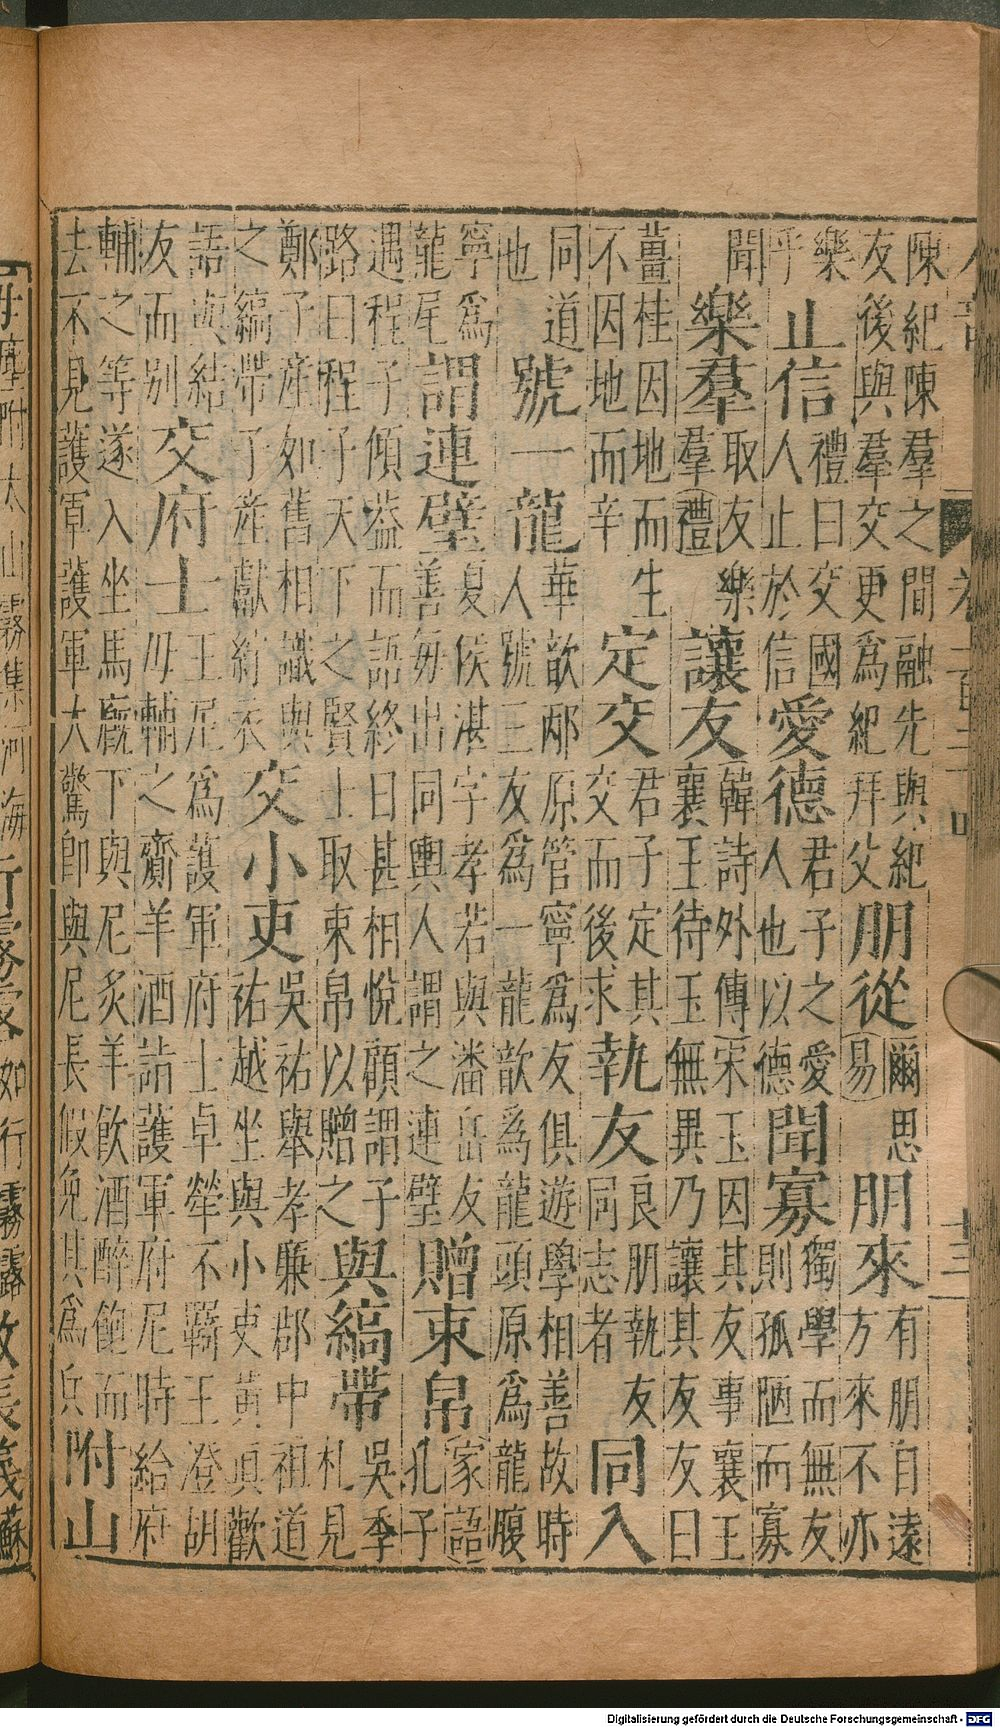 陳紀陳羣之間融先與紀
友後與羣交更爲紀拜父
朋從
爾思
易
朋來
有朋自遠
方來不亦
樂
乎
止信
禮曰交國
人止於信
愛德
君子之愛
人也以德
聞寡
獨學而無友
則孤陋而寡
聞
樂羣
取友樂
羣禮
讓友
韓詩外傳宋玉因其友事襄王
襄王待玉無異乃讓其友友曰
薑桂因地而生
不因地而辛
定交
君子定其
交而後求
執友
良朋執友
同志者
同入
同道
也
號一龍
華歆邴原管寧爲友俱遊學相善故時
人號三友爲一龍歆爲龍頭原爲龍腹
寧爲
龍尾
謂連璧
夏侯湛字孝若與潘岳友
善每出同輿人謂之連璧
贈束帛
家語
孔子
遇程子傾蓋而語終日甚相悅顧謂子
路曰程子天下之賢士取束帛以贈之
與縞帶
吳季
札見
鄭子產如舊相識與
之縞帶子產獻紵衣
交小吏
吳祐舉孝廉郡中祖道
祐越坐與小吏黃真歡
語與結
友而別
交府士
王尼爲護軍府士卓犖不羈王澄胡
毋輔之齎羊酒詣護軍府尼時給府
輔之等遂入坐馬廐下與尼炙羊飲酒醉飽而
去不見護軍護軍大驚即與尼長假免其爲兵
附山
Digitalisierung gefördert durch die Deutsche Forschungsgemeinschaft - DFG